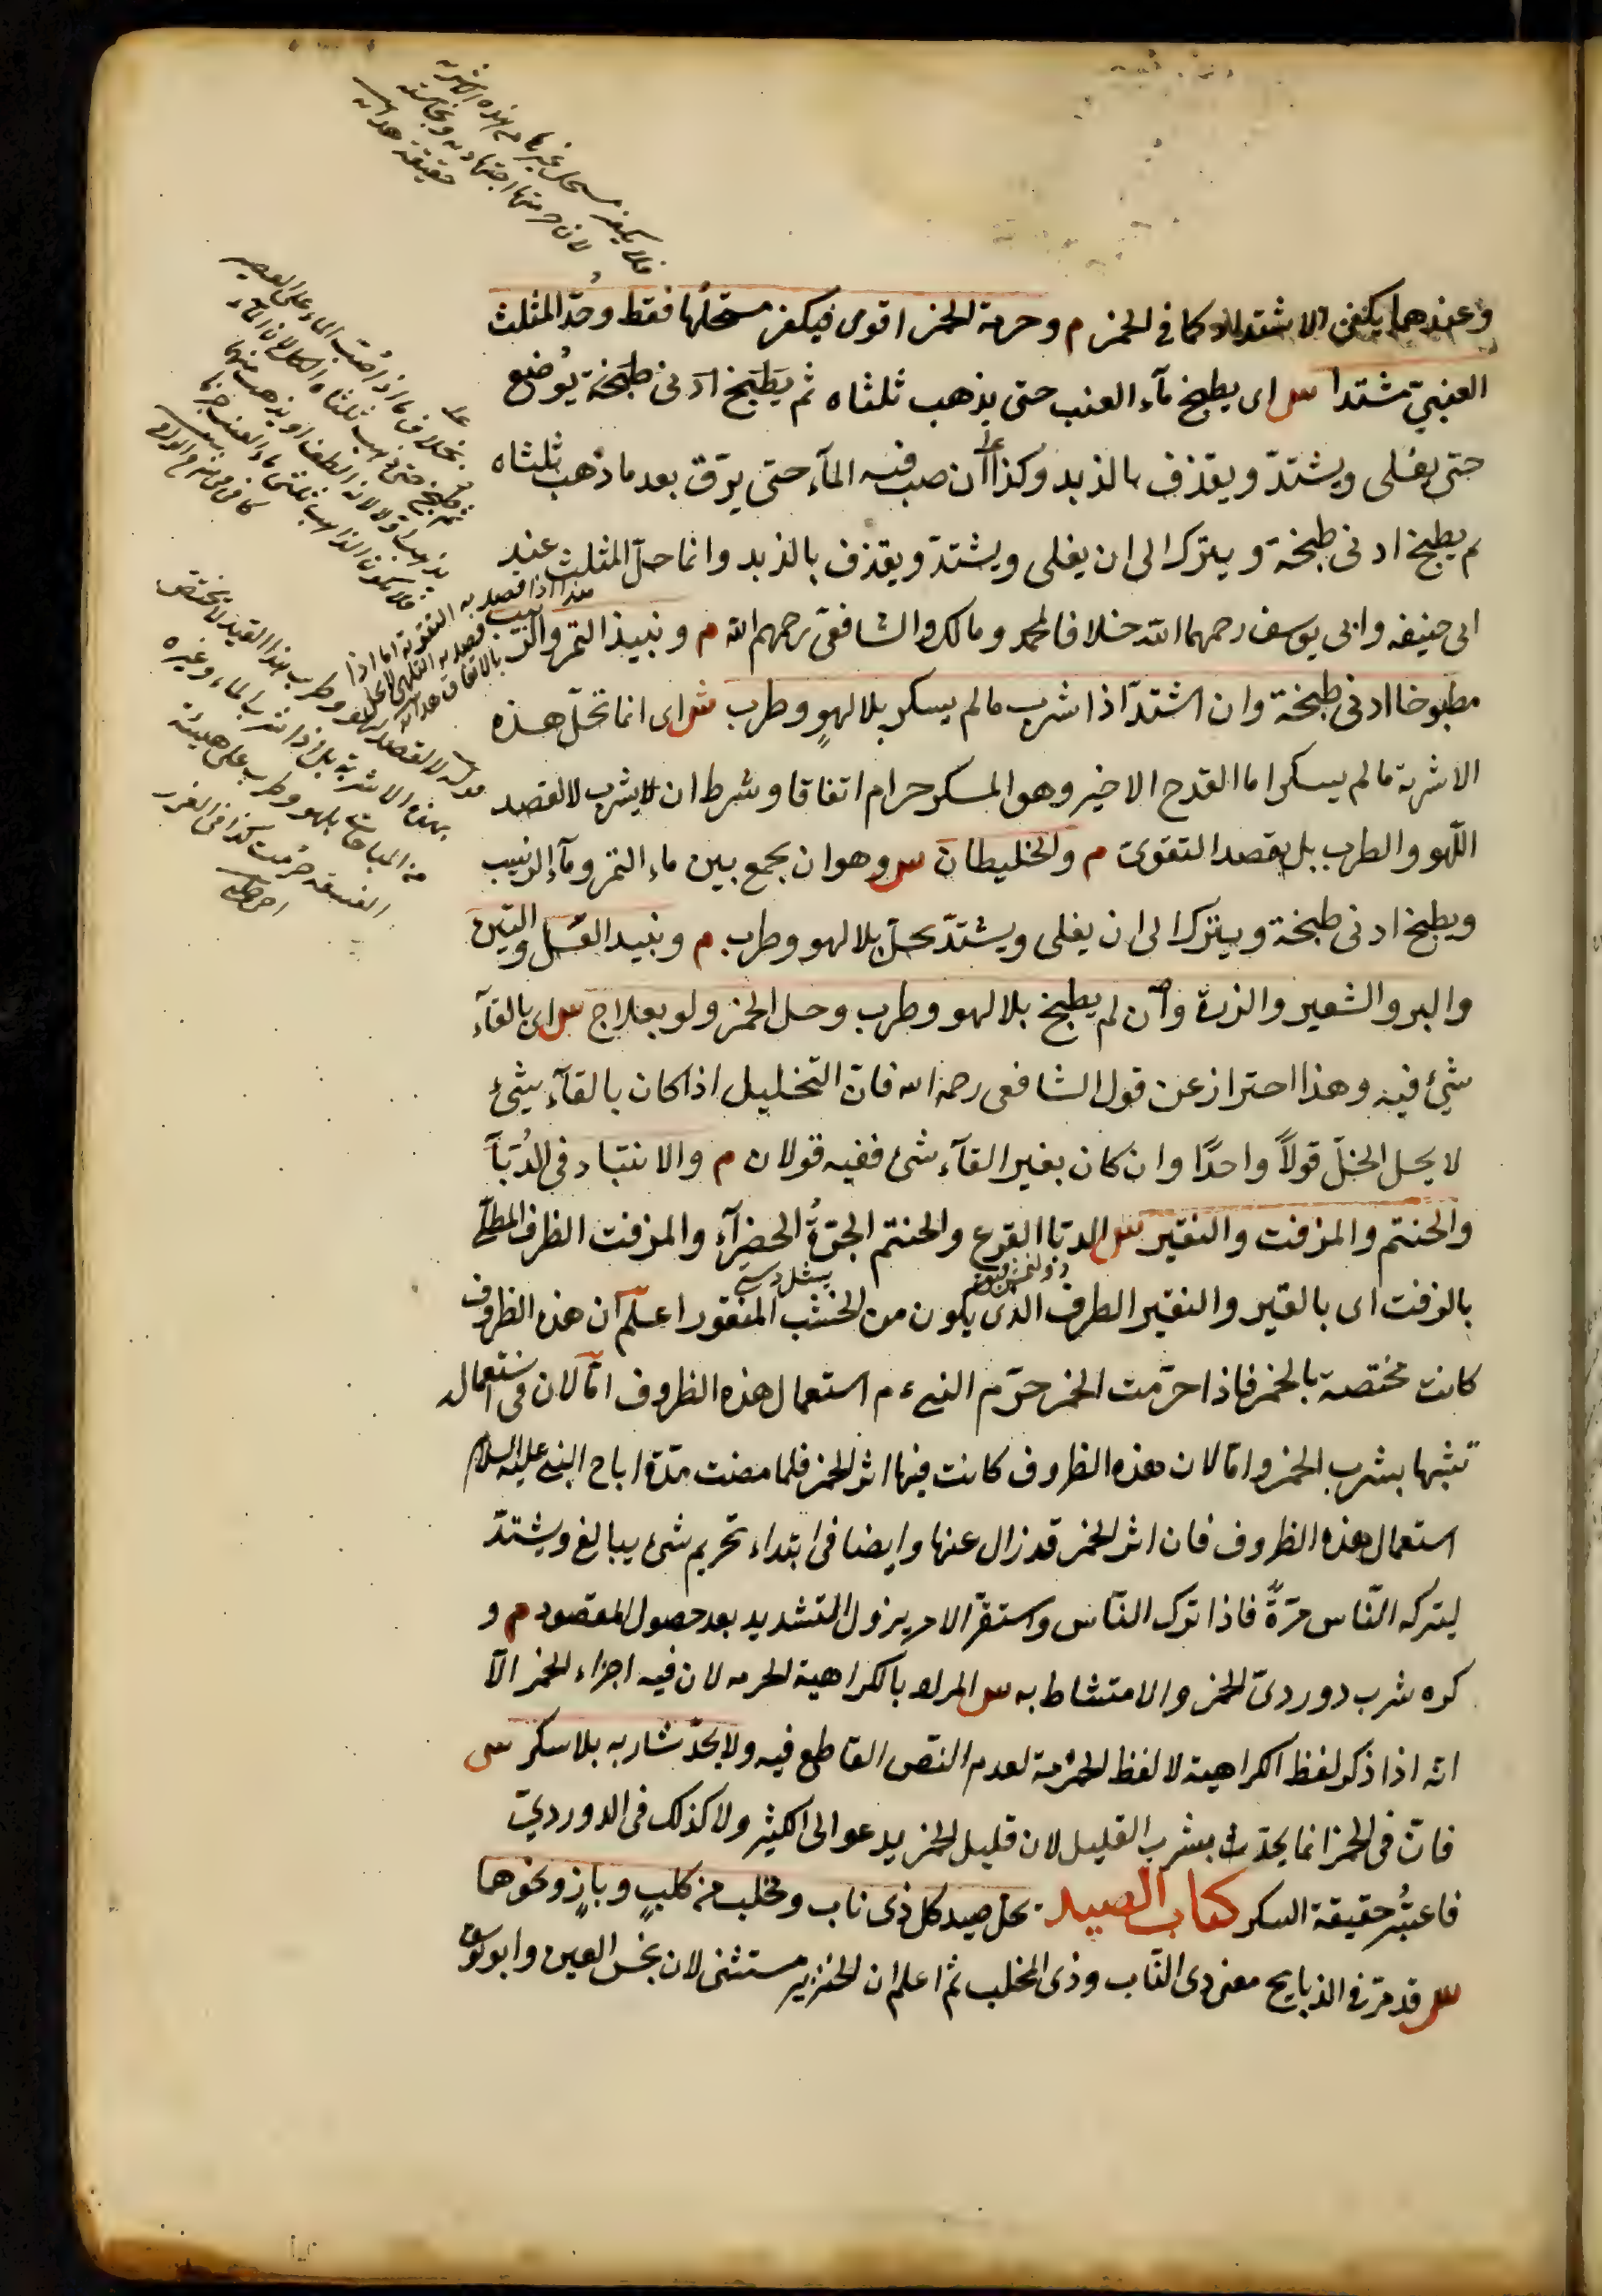 وعندهما يكفي الاشتداد كما في الخمر م وحرمة الخمر اقوى فيكفر مستحلها فقط وحل المثلث
العنبي مشتدا س اى يطبخ ماء العنب حتى يذهب ثلثاه ثم يطبخ ادنى طبخة يوضع
حتى يغلى ويشتد ويقذف بالذبد وكذا ان صب فيه الماء حتى يرق بعد ما ذهب ثلثاه
م يطبخ ادنى طبخة ويترك الى ان يغلى ويشتد ويقذف بالذبد وانما حل المثلث عند
ابى حنيفه وابى يوسف رحمهما الله خلافا لمحمد ومالك والشافعى رحمهم الله م ونبيذ التمر والزبيب
مطبوخا ادنى طبخة وان اشتد اذا شرب مالم يسكر بلا لهو وطرب ش اى انما تحل هذه
الاشربة مالم يسكر اما القدح الاخير وهو المسكر حرام اتفاقا وشرط ان لا يشرب لا لقصد
اللهو والطرب بل بقصد التقوى م والخليطان س وهو ان يجمع بين ماء التمر وماء الزبيب
ويطبخ ادنى طبخة ويترك الى ان يغلى ويشتد يحل بلا لهو وطرب م ونبيد العسل والتين
والبر والشعير والذرة وان لم يطبخ بلا لهو وطرب وحل الخمر ولو بعلاج س اى بالقآء
شئ فيه وهذا احتراز عن قول الشافعى رحمه الله فان التخليل اذا كان بالقآء شئ
لا يحل الخل قولاً واحدًا وان كان بغير القآء شئ ففيه قولان م والانتباد فى الدُبّآ
والحنتم والمزفت والنقير س الدبا القرع والحنتم الجرّةُ الخضرآء والمزفت الظرف المطلّى
بالزفت اى بالقير والنقير الظرف الذى يكون من الخشب المنقور اعلم ان هذه الظروف
كانت مختصة بالخمر فاذا حرّمت الخمر حرّم النبي ءم استعمال هذه الظروف امّا لان فى استعماله
تشبها بشرب الخمر وامّا لان هذه الظروف كانت فيها اثر الخمر فلما مضت مدّة اباح النبي عليه السلام
استعمال هذه الظروف فان اثر الخمر قد زال عنها وايضا فى ابتداء تحريم شئ يبالغ ويشتدّ
ليتركه النّاس مرّةً فاذا ترك النّاس واستقرّ الامر يزول التشديد بعد حصول المقصود م و
كره شرب دوردىّ الخمر والامتشاط به س المراد بالكراهية الحرمه لان فيه اجزاء الخمر الآ
انه اذا ذكر لفظ الكراهية لا لفظ الحُرْمة لعدم النصّ القاطع فيه ولا يحدّ شاربه بلا سكر س
فانّ فى الخمر انما يحدّ بشرب القليل لان قليل الخمر يدعو الى الكثير ولا كذلك فى الدوردىّ
فاعتبُر حقيقة السكر كتاب الصيد يحل صيد كل ذى ناب ومخلب من كلبٍ وبازٍ ونحوهما
س قد مرّ فى الذبايح معنى ذى النّاب وذى المخلب ثم اعلم ان الخنزير مستثنى لان نجس العين وابو يوسف
فلا يكفر مستحل غيرها من هذه الاشربة
لان حرمتها اجتهادية
بخلاف ما اذا صُبّ الماء على العصير
بهذه الاشربة بل اذا شرب الماء وغيره
من المباحات بلهو وطرب على هيئة
الفسقة حرمت كذا فى الغرر